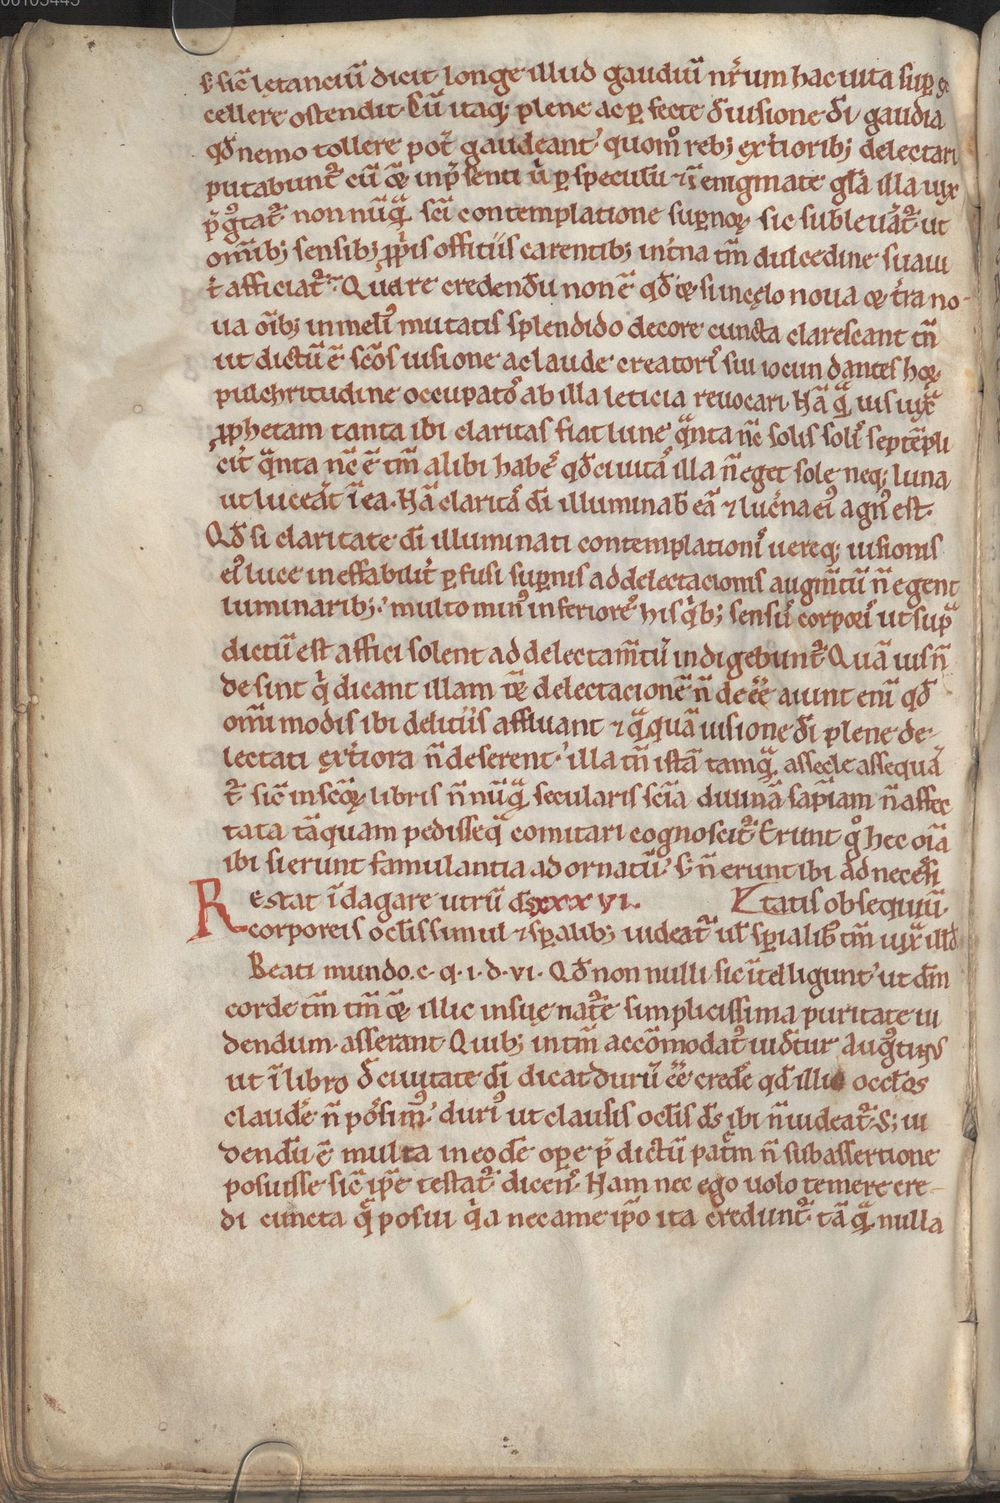 00103443
s; sic̄ letanciū dicit longe illud gaudiū nr̄um hac uita sup̱ ge
cellere ostendit. Cū itaq; plene ac ꝑfecte d̄ uisione dī gaudia
qd̄ nemo tollere pot̄ gaudeant quom̊ reb; ext̄iorib; delectari
putabunt᷑ cū & in p̄senti ū ꝑ speculū & ī enigmate glā illa uix
p̄gꝰtat᷑ non nūq̄ sc̄i contemplatione sup̱noꝝ sic subleuāt᷑ ut
om̄ib; sensib; ꝓpis officiis carentib; int̄na tm̄ dulcedine suaui
t̄ afficiat᷑. Quare credend̄u non ē qd̄ & si in cęlo noua & t̄ra no-
ua oīb; in meliꝰ mutatis splendido decore cuncta clarescant tn̄
ut dictū ē sc̄os uisione ac laude creatorꝭ sui iocundantes hoꝝ
pulchritudine occupatoꝭ ab illa leticia reuocari. Nā q̄ uis iux̄
ꝓphetam tanta ibi claritas fiat lune q̄nta nc̄ solis solꝭ septēpli
cit̄ q̄nta nc̄ ē tm̄ alibi habeꝭ qd̄ ciuitaꝭ illa n̄ eget sole neq; luna
ut luceāt ī ea. Nā claritaꝭ dī illuminab̄ eā & luc̄na eiꝰ agnꝰ est.
Qd̄ si claritate dī illuminati contemplationiꝭ uereq; uisionis
eiꝰ luce ineffabilit̄ ꝑfusi sup̱nis ad delectacionis augm̄tū n̄ egent
luminarib; multo minꝰ inferioreꝭ his q̄b; sensuꝭ corporeꝭ ut sup̄
dictū est affici solent ad delectam̄tū indigebunt᷑. Quāuis n̄
desint q̄ dicant illam &̄ delectacionē n̄ de ēē aiunt enī qd̄
omīmodis ibi deliciis affluant & q̄quā uisione dī plene de-
lectati ext̄iora n̄ deserent illa tn̄ istā tamq̄ assecle assequā
t̄ sic̄ in sc̄oꝝ libris n̄ nūq̄ secularis scīa diuinā sapīam n̄ affec
tata tāquam pedisseq̄ comitari cognoscit᷑. Erunt g̊ hec oīa
ibi si erunt famulantia ad ornatū s; n̄ erunt ibi ad necessi
Restat īdagare utrū ds̄ xxxvi. tatis obsequiū.
corporeis oc̄lis simul & sp̱alib; uideat᷑ ul̄ sp̱ialib̄ tm̄ iux̄ illd̄
Beati mundo. c. q. i. d. vi. Qd̄ non nulli sic ītelligunt ut dm̄
corde tm̄ tm̄ & illic in sue nat̄e simplicissima puritate ui
dendum asserant. Quib; in tm̄ accōmodatꝰ uid̄tur augꝰtinꝰ
ut ī libro d̄ ciuitate dī dicat durū ēē credeꝭ qd̄ illic oc̄los
claudeꝭ n̄ possimꝰ duriꝰ ut clausis oc̄lis ds̄ ibi n̄ uideat᷑. S; ui
dend̄u ē multa in eod̄e opere p̄dictū patrē n̄ sub assertione
posuisse sic̄ ip̄e testat᷑ dicenꝭ. Nam nec ego uolo temere cre-
di cuncta q̄ posui q̄a nec a me ip̄o ita credunt᷑ tā q̄ nulla